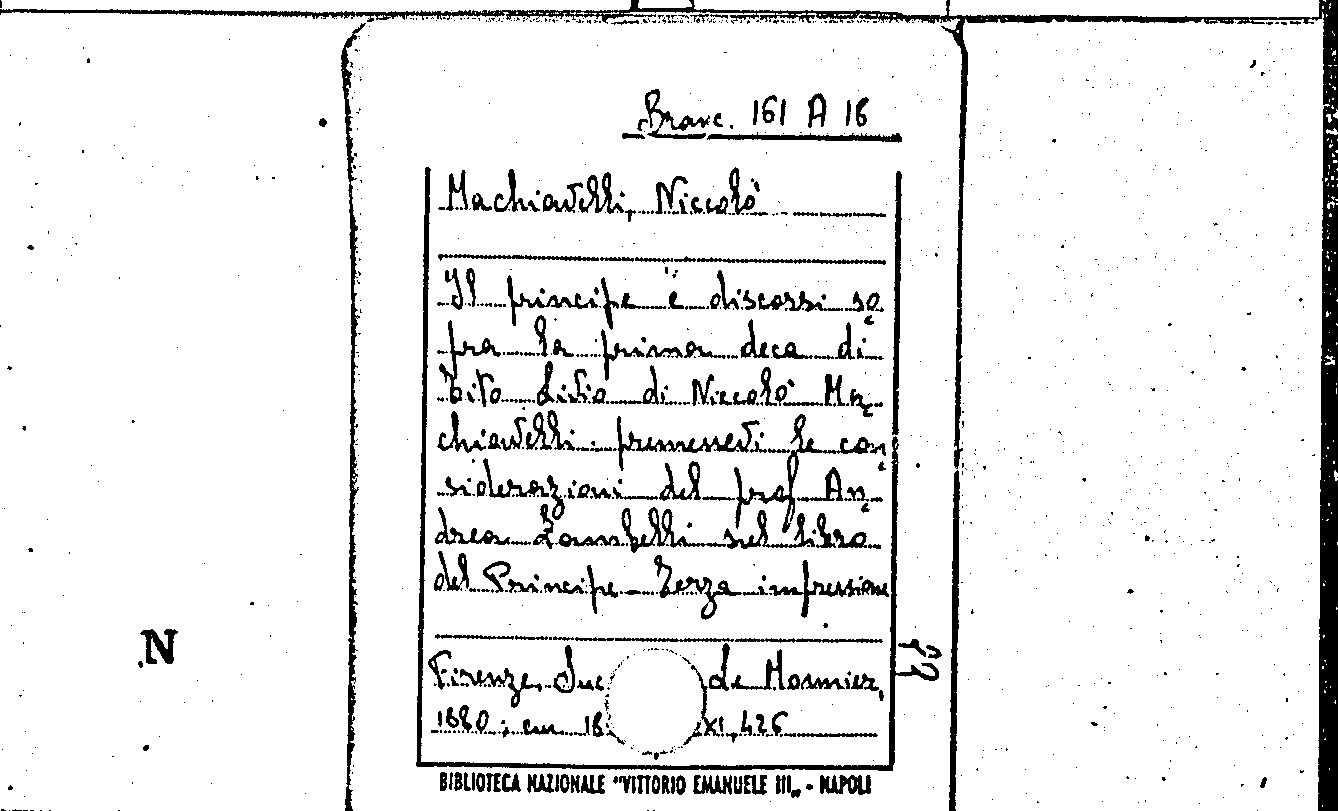 Branc. 161 A 16
Machiavelli, Niccolò
Il principe e discorsi so-
pra la prima deca di
Tito Livio di Niccolò Ma-
chiavelli. premessevi le con
siderazioni del prof An-
drea Zambelli sul libro
del Principe - Terza impressione
Firenze, Suc de Monnier,
1880; cm 18 XI, 426
BIBLIOTECA NAZIONALE "VITTORIO EMANUELE III„ - NAPOLI
N